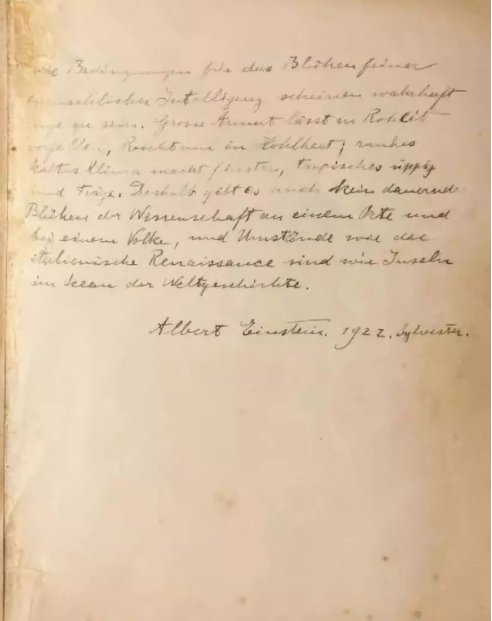 Die Bedingungen für das Blühen feiner
menschlicher Intelligenz scheinen wahrhaft
zu sein. Grosse Armut lässt in Rohheit
, Reichtum in Hohlheit; rauhes
kaltes Klima macht finster, tropisches üppig
und träge. Deshalb gibt es auch kein dauernd
Blühen der Wissenschaft an einem Orte und
bei einem Volke, und Umstände wie die
italienische Renaissance sind wie Inseln
im Ocean der Weltgeschichte.
Albert Einstein. 1922. Sylvester.